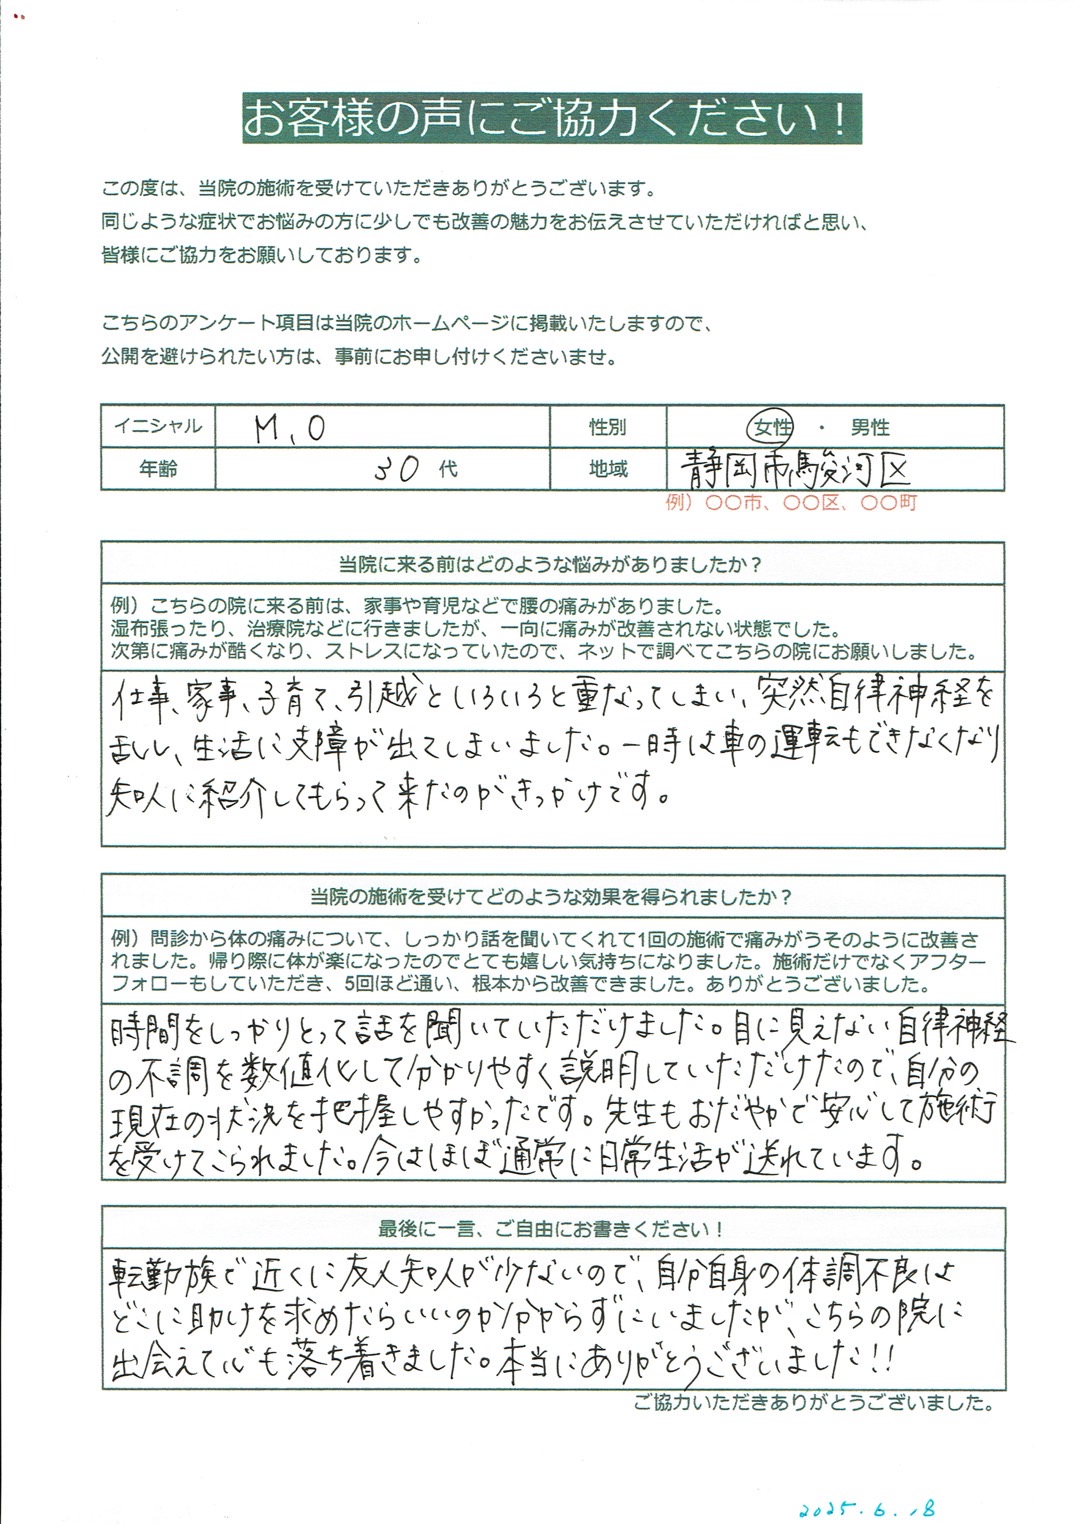 お客様の声にご協力ください！
この度は、当院の施術を受けていただきありがとうございます。
同じような症状でお悩みの方に少しでも改善の魅力をお伝えさせていただければと思い、
皆様にご協力をお願いしております。
こちらのアンケート項目は当院のホームページに掲載いたしますので、
公開を避けられたい方は、事前にお申し付けくださいませ。
イニシャル M.O 性別 女性 ・ 男性
年齢 30 代 地域 静岡市駿河区
例）〇〇市、〇〇区、〇〇町
当院に来る前はどのような悩みがありましたか？
例）こちらの院に来る前は、家事や育児などで腰の痛みがありました。
湿布張ったり、治療院などに行きましたが、一向に痛みが改善されない状態でした。
次第に痛みが酷くなり、ストレスになっていたので、ネットで調べてこちらの院にお願いしました。
仕事、家事、子育て、引越といろいろと重なってしまい、突然自律神経を
乱し、生活に支障が出てしまいました。一時は車の運転もできなくなり
知人に紹介してもらって来たのがきっかけです。
当院の施術を受けてどのような効果を得られましたか？
例）問診から体の痛みについて、しっかり話を聞いてくれて1回の施術で痛みがうそのように改善さ
れました。帰り際に体が楽になったのでとても嬉しい気持ちになりました。施術だけでなくアフター
フォローもしていただき、5回ほど通い、根本から改善できました。ありがとうございました。
時間をしっかりとって話を聞いていただけました。目に見えない自律神経
の不調を数値化して分かりやすく説明していただけたので、自分の
現在の状況を把握しやすかったです。先生もおだやかで安心して施術
を受けてこられました。今はほぼ通常に日常生活が送れています。
最後に一言、ご自由にお書きください！
転勤族で近くに友人知人が少ないので、自分自身の体調不良は
どこに助けを求めたらいいのか分からずにいましたが、こちらの院に
出会えて心も落ち着きました。本当にありがとうございました!!
ご協力いただきありがとうございました。
2025.6.18